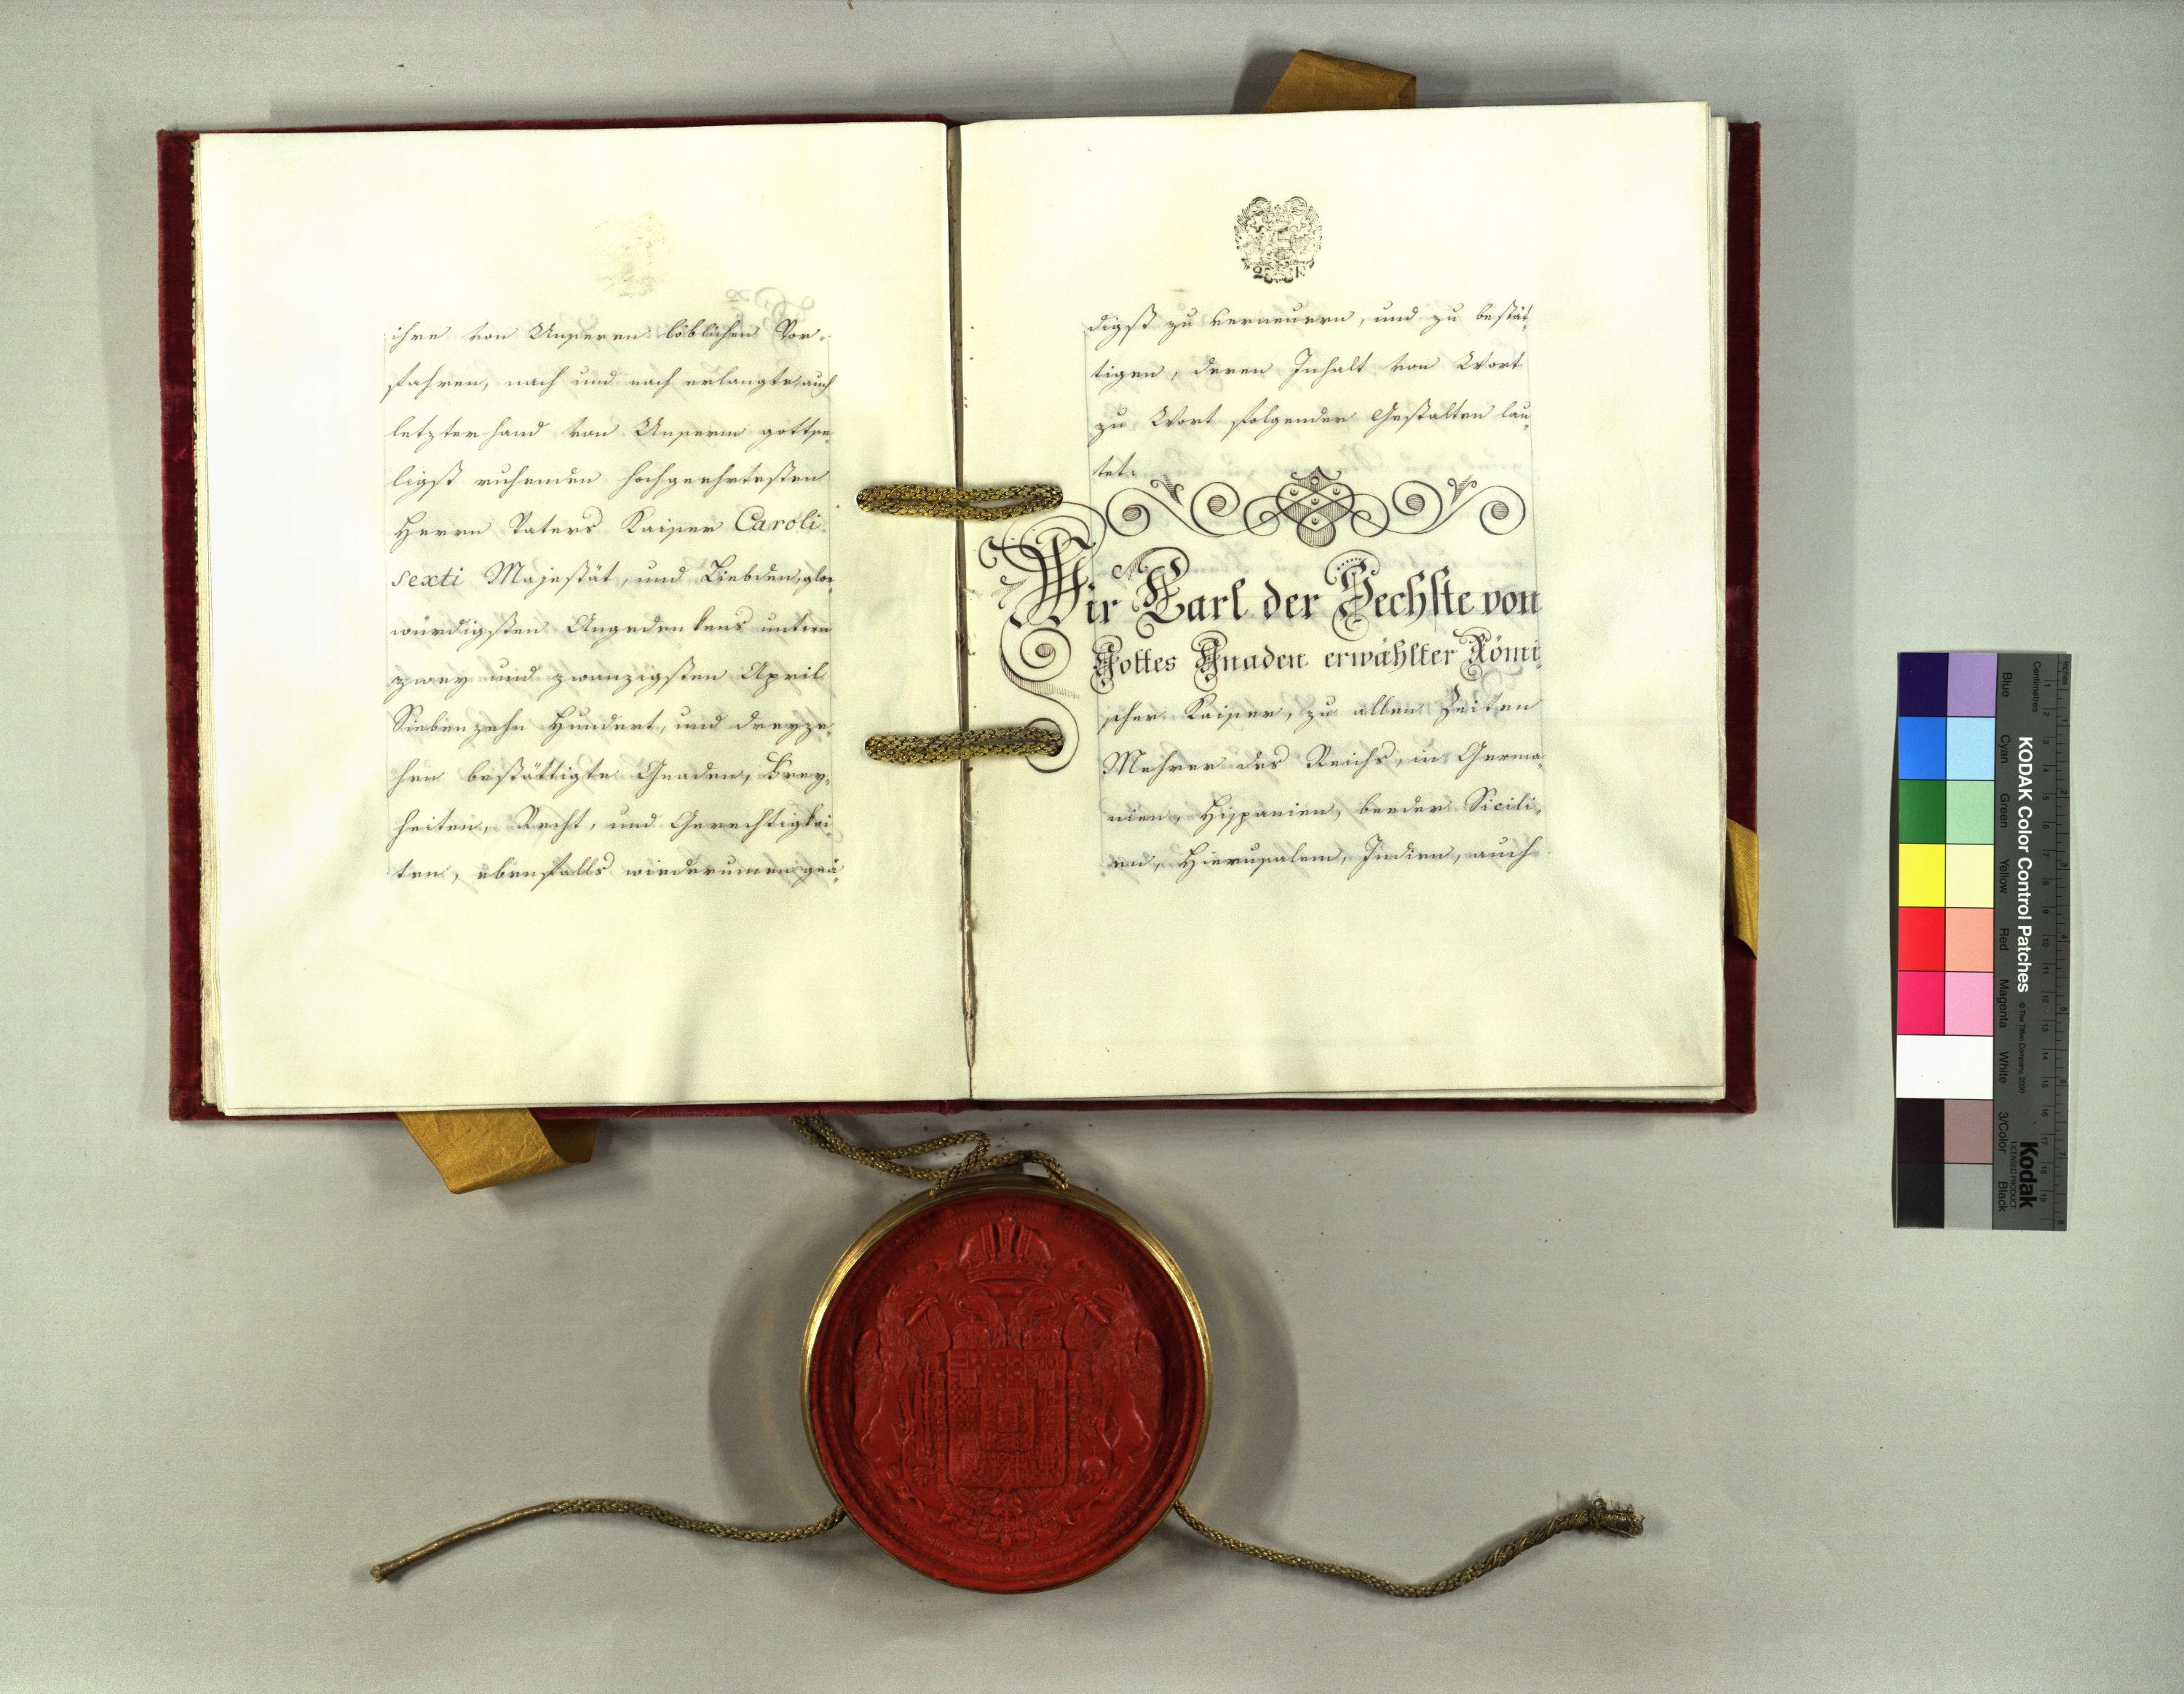 ihre von Unseren löblichen Vor-
fahren, nach und nach erlangte, auch
letzterhand von Unserm gottse-
ligst ruhenden hochgeehrtesten
Herrn Vaters Kaiser Caroli
sexti Majestät, und Liebden, glor-
würdigsten Angedenkens unterm
zwey und zwanzigsten April
Siebenzehn Hundert, und dreyze-
hen bestättigte Gnaden, Frey-
heiten, Recht, und Gerechtigkei-
ten, ebenfalls wiederumen gnä-
digst zu verneuern, und zu bestät-
tigen, deren Inhalt von Wort
zu Wort folgender Gestalten lau-
tet:
Wir Carl der Sechste von
Gottes Gnaden erwählter Römi-
scher Kaiser, zu allen Zeiten
Mehrer des Reichs, in Germa-
nien, Hispanien, beeder Sicili-
en, Hierusalem, Indien, auch
KODAK Color Control Patches
© The Tiffen Company, 2000
Kodak
LICENSED PRODUCT
Inches
Centimetres
Blue
Cyan
Green
Yellow
Red
Magenta
White
3/Color
Black